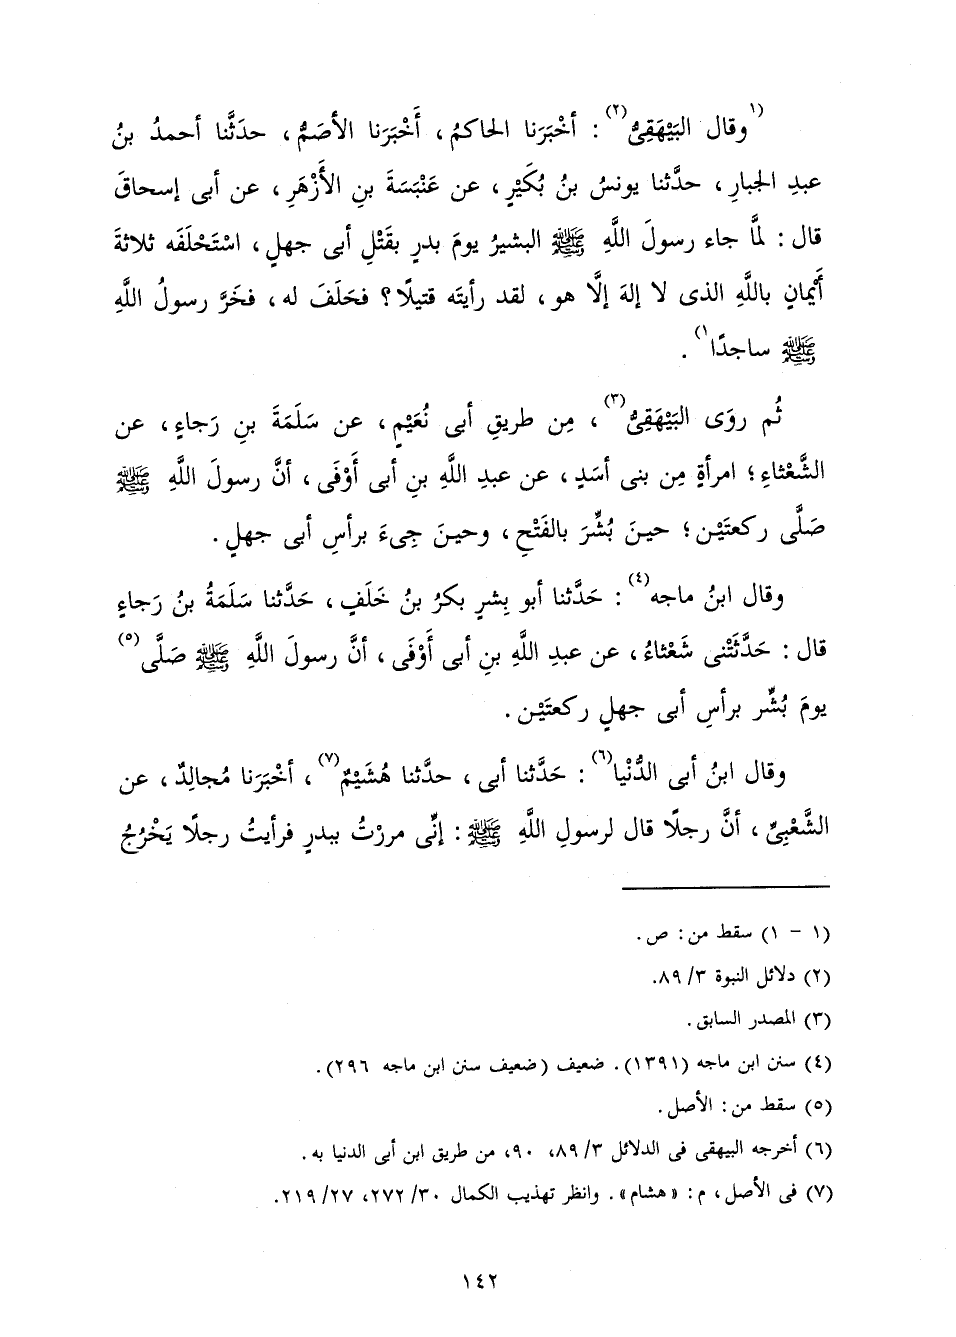 (١وقال البَيْهَقِىُّ(٢) : أخْبَرَنا الحاكمُ، أَخْبَرَنا الأصَمُّ، حدَثَّنا أحمدُ بنُ
عبدِ الجبارِ، حدَّثنا يونسُ بنُ بُكَيْرٍ، عن عَنْبَسَةَ بنِ الأَزْهَرِ، عن أبى إسحاقَ
قال : لمَّا جاء رسولَ اللَّهِ ﷺ البشيرُ يومَ بدرٍ بقَتْلِ أبى جهلٍ، اسْتَحْلَفَه ثلاثةَ
أَيْمانٍ باللَّهِ الذى لا إلهَ إلَّا هو، لقد رأيتَه قتيلًا؟ فحَلَفَ له، فخَرَّ رسولُ اللَّهِ
ﷺ ساجدًا١) .
ثُم روَى البَيْهَقِىُّ(٣)، مِن طريقِ أبى نُعَيْمٍ، عن سَلَمَةَ بنِ رَجاءٍ، عن
الشَّعْثاءِ؛ امرأةٍ مِن بنى أسَدٍ، عن عبدِ اللَّهِ بنِ أبى أَوْفَى، أنَّ رسولَ اللَّهِ ﷺ
صَلَّى ركعتَيْن؛ حينَ بُشِّرَ بالفَتْحِ، وحينَ جِىءَ برأسِ أبى جهلٍ.
وقال ابنُ ماجه(٤) : حَدَّثنا أبو بِشرٍ بكرُ بنُ خَلَفٍ، حَدَّثنا سَلَمَةُ بنُ رَجاءٍ
قال : حَدَّثَتْنى شَعْثاءُ، عن عبدِ اللَّهِ بنِ أبى أَوْفَى، أنَّ رسولَ اللَّهِ ﷺ صَلَّى(٥)
يومَ بُشِّر برأسِ أبى جهلٍ ركعتَيْن.
وقال ابنُ أبى الدُّنْيا(٦) : حَدَّثنا أبى، حدَّثنا هُشَيْمٌ(٧)، أخْبَرَنا مُجالِدٌ، عن
الشَّعْبِىِّ، أنَّ رجلًا قال لرسولِ اللَّهِ ﷺ : إنِّى مررْتُ ببدرٍ فرأيتُ رجلًا يَخْرُجُ
(١ - ١) سقط من: ص.
(٢) دلائل النبوة ٣/ ٨٩.
(٣) المصدر السابق.
(٤) سنن ابن ماجه (١٣٩١). ضعيف (ضعيف سنن ابن ماجه ٢٩٦).
(٥) سقط من: الأصل.
(٦) أخرجه البيهقى فى الدلائل ٣/ ٨٩، ٩٠، من طريق ابن أبى الدنيا به.
(٧) فى الأصل، م: «هشام». وانظر تهذيب الكمال ٣٠/ ٢٧٢، ٢٧/ ٢١٩.
١٤٢